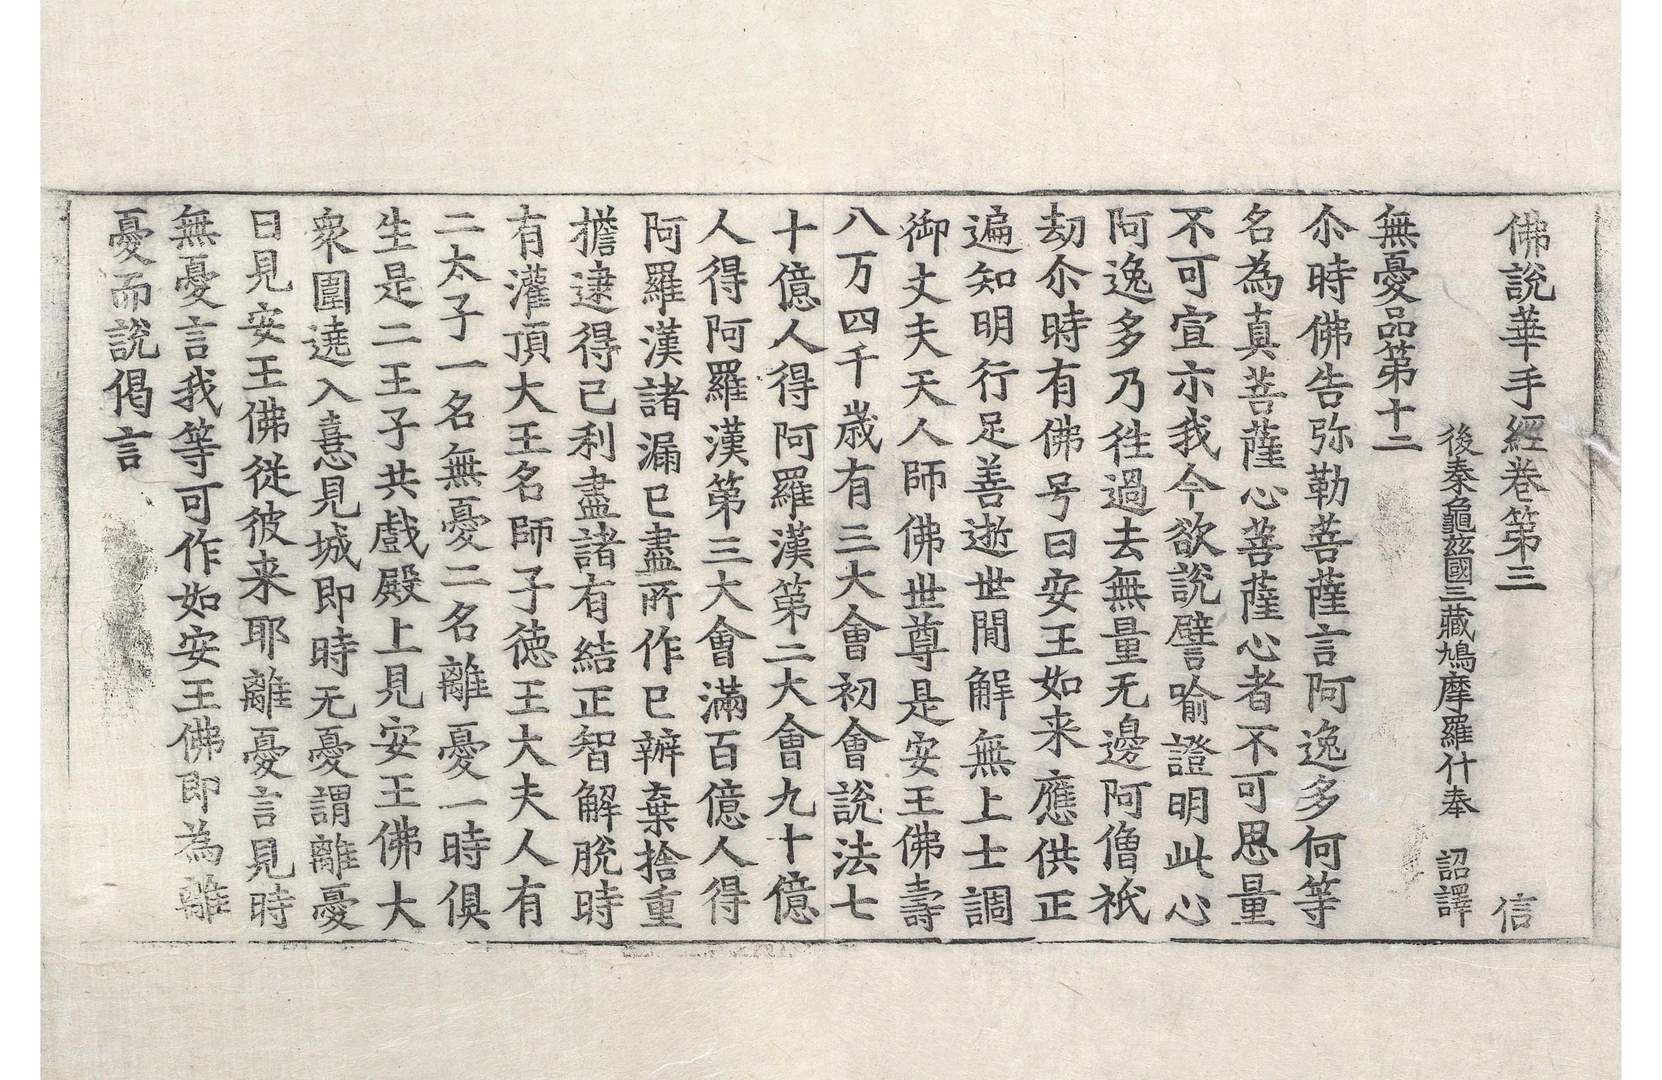 佛說華手經卷第三 信
後秦龜茲國三藏鳩摩羅什奉 詔譯
無憂品第十二
尒時佛告弥勒菩薩言阿逸多何等
名為真菩薩心菩薩心者不可思量
不可宣示我今欲說譬喻證明此心
阿逸多乃徃過去無量无邊阿僧祇
劫尒時有佛号曰安王如来應供正
遍知明行足善逝世閒解無上士調
御丈夫天人師佛世尊是安王佛壽
八万四千歲有三大會初會說法七
十億人得阿羅漢第二大會九十億
人得阿羅漢第三大會滿百億人得
阿羅漢諸漏已盡所作已辦棄捨重
擔逮得己利盡諸有結正智解脫時
有灌頂大王名師子德王大夫人有
二太子一名無憂二名離憂一時俱
生是二王子共戲殿上見安王佛大
衆圍遶入憙見城即時无憂謂離憂
曰見安王佛從彼来耶離憂言見時
無憂言我等可作如安王佛即為離
憂而說偈言